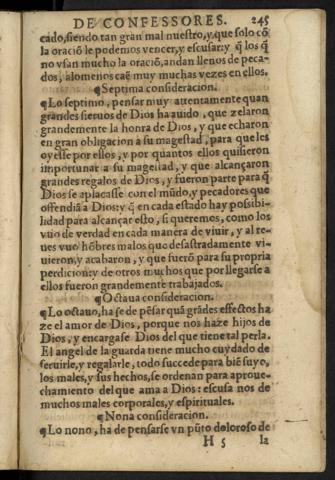 DE CONFESSORES. 245
cado, siendo tan gran mal nuestro, y que solo cõ
la oraciõ le podemos vencer, y escusar: y q̃ los q̃
no vsan mucho la oraciõ, andan llenos de peca-
dos, alomenos caẽ muy muchas vezes en ellos.
¶ Septima consideracion.
¶ Lo septimo, pensar muy attentamente quan
grandes sieruos de Dios ha auido, que zelaron
grandemente la honra de Dios, y que echaron
en gran obligacion a su magestad, para que les
oyesse por ellos, y por quantos ellos quisieron
importunar a su magestad, y que alcançaron
grandes regalos de Dios, y fueron parte para q̃
Dios se aplacasse con el mũdo, y pecadores que
offendiã a Dios: y q̃ en cada estado hay possibi-
lidad para alcançar esto, si queremos, como los
vuo de verdad en cada manera de viuir, y al re-
ues vuo hõbres malos que desastradamente vi-
uieron, y acabaron, y que fuerõ para su propria
perdicion: y de otros muchos que por llegarse a
ellos fueron grandemente trabajados.
¶ Octaua consideracion.
¶ Lo octauo, ha se de pẽsar quã grãdes effectos ha
ze el amor de Dios, porque nos haze hijos de
Dios, y encargase Dios del que tiene tal perla.
El angel de la guarda tiene mucho cuydado de
seruirle, y regalarle, todo succede para biẽ suyo,
los males, y sus hechos, se ordenan para aproue-
chamiento del que ama a Dios: escusa nos de
muchos males corporales, y espirituales.
¶ Nona consideracion.
¶ Lo nono, ha de pensarse vn pũto doloroso de
H 5 la